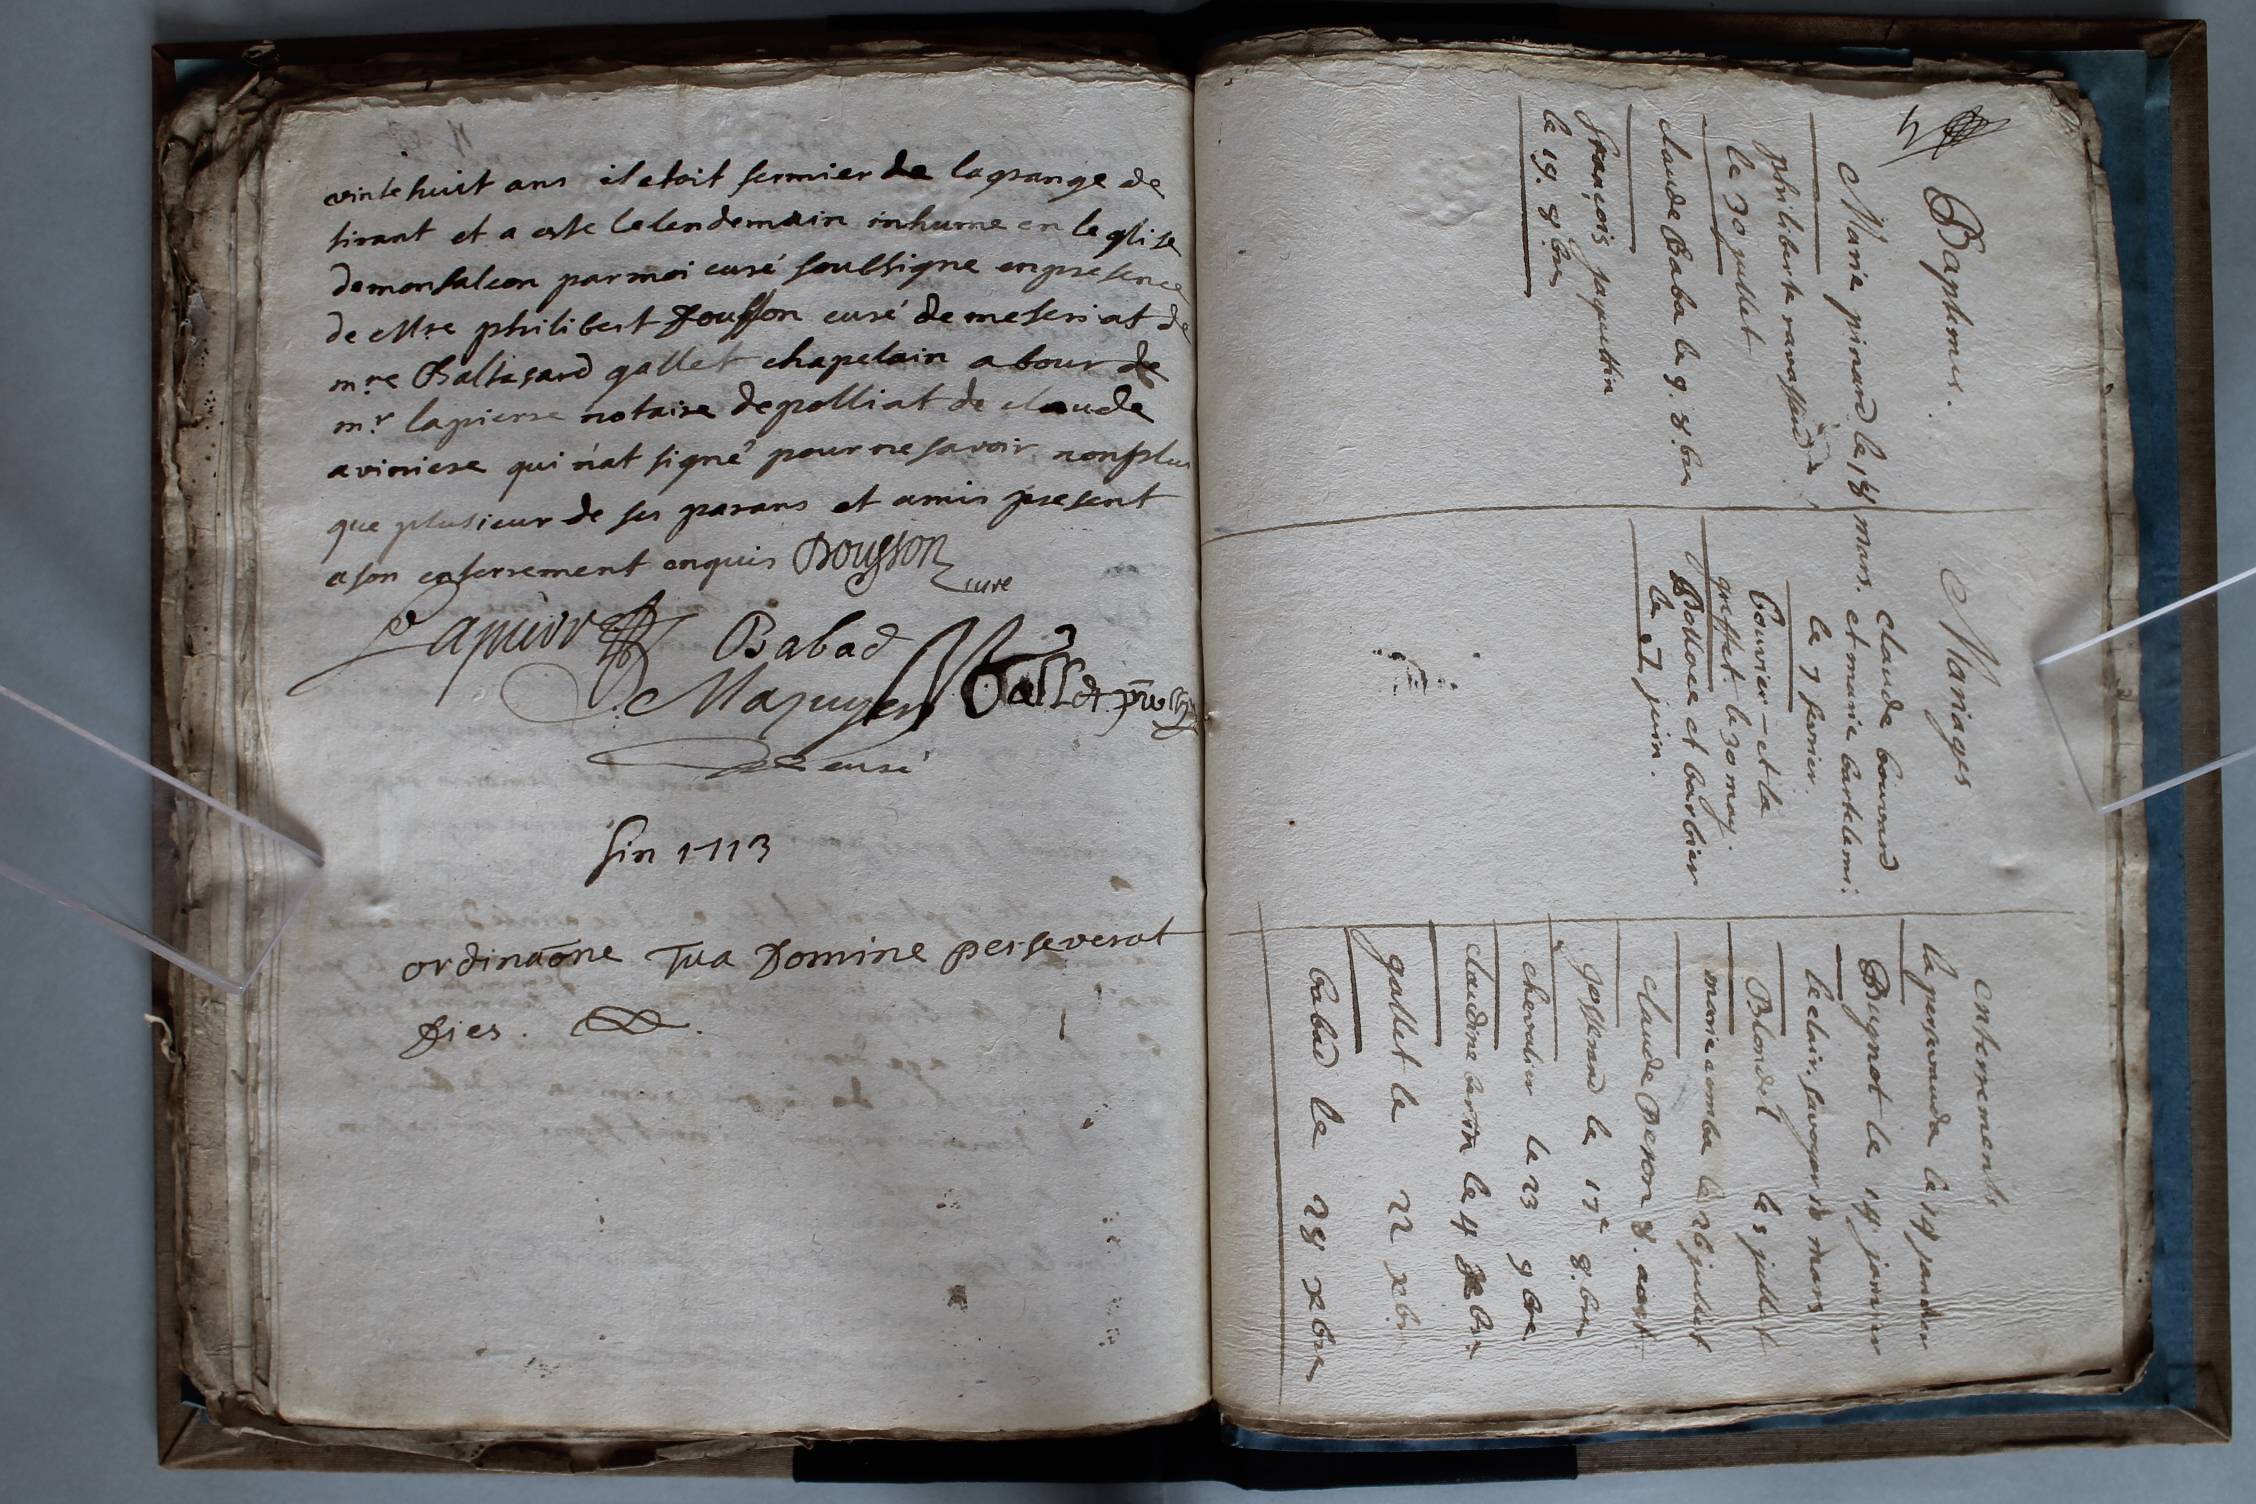 vinte huit ans il etoit fermier de lagrange de
sirant et a este lelendemain inhume en leglise
demonfalcon parmoi curé soubsigne enpresence
de Mre philibert Dousson curé de meseriat de
mre Baltasard gallet chapelain a bour de
mr lapierre notaire depolliat de claude
aviniere qui n'at signé pour ne savoir nonplus
que plusieur de ses parans et amis present
a son enterrement enquis Dousson
curé
Lapierre Babad
Mapuyer Gallet pre
curé
fin 1713
ordinaōne Tua Domine perseverat
Dies.
Baptemes.
Marie pinard le 18 mars.
philiberte ravassaud
le 30 jullet
claude Baba le 9. 8.bre
françois jaquettin
le 19. 8bre
Mariages
claude bouvard
et marie bartelemi.
le 7 fevrier
Bouvier et la
greffet. le 30 may.
Dolloce et barbier
le 27 juin.
enterrements
la perravauda le 19 janvier
Bugnot le 19 janvier
le clair, savoyar 10 mars
Blondel le 5 jullet
marie comba le 26 jullet
claude Peron 8. aout.
gossend le 17e 8.bre
chevalier le 23 9bre
claudine varin le 4 xbre
gallet le 22 xbr
babad le 28 xbre